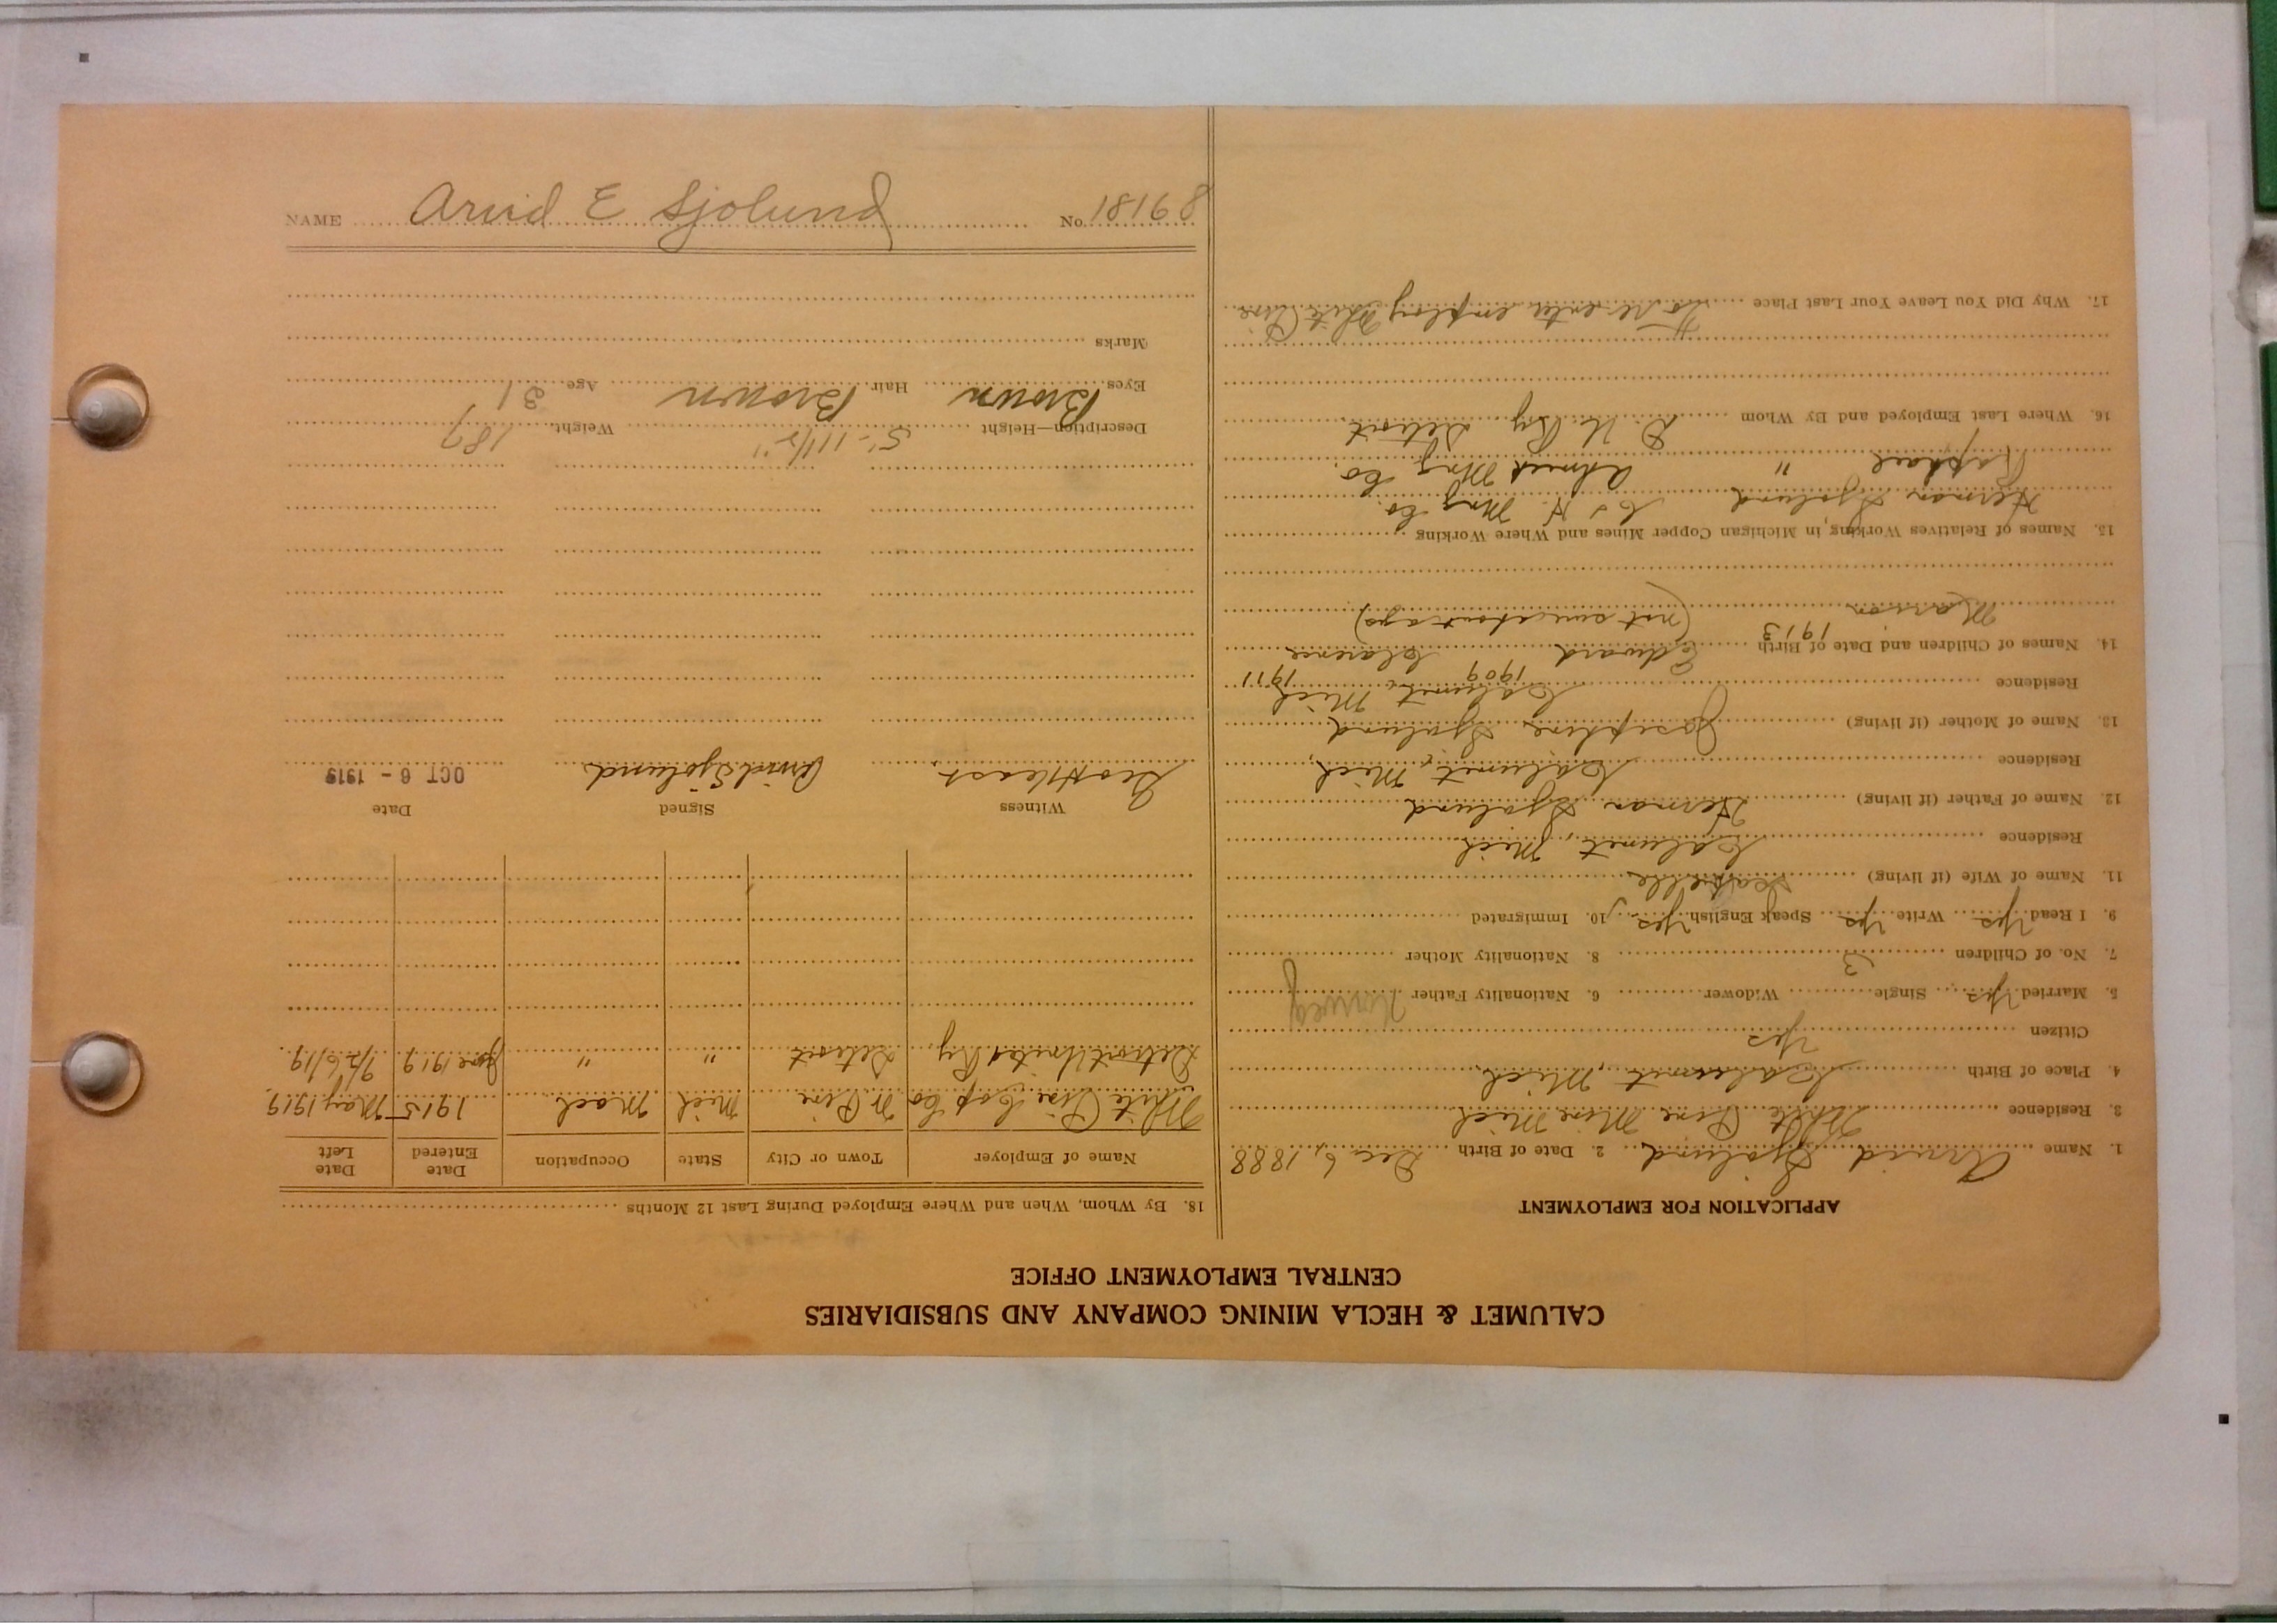 CALUMET & HECLA MINING COMPANY AND SUBSIDIARIES
CENTRAL EMPLOYMENT OFFICE
APPLICATION FOR EMPLOYMENT
1. Name Arvid Sjolund 2. Date of Birth Dec 6, 1888
3. Residence White Pine Mine Mich
4. Place of Birth Calumet, Mich
Citizen Yes
5. Married Yes Single Widower 6. Nationality Father Norweg
7. No. of Children 3 8. Nationality Mother
9. I Read Yes Write Yes Speak English Yes 10. Immigrated
11. Name of Wife (if living)
Residence Calumet, Mich
12. Name of Father (if living) Herman Sjolund
Residence Calumet, Mich,
13. Name of Mother (if living) Josephine Sjolund
Residence Calumet, Mich
1909 1911
14. Names of Children and Date of Birth Edward Clarence
1913
Marion (not sure about ages)
15. Names of Relatives Working in Michigan Copper Mines and Where Working
Herman Sjolund C & H Mng Co.
Raphael " Ahmeek Mng Co.
16. Where Last Employed and By Whom D. U. Ry Detroit
17. Why Did You Leave Your Last Place To re enter employ White Pine
18. By Whom, When and Where Employed During Last 12 Months
Name of Employer Town or City State Occupation Date Entered Date Left
White Pine Cop Co W. Pine Mich Mach 1915 May 1919
Detroit United Ry. Detroit " " June 1919 9/26/19.
Witness Signed Date
Arvid Sjolund OCT 6 - 1919
Description—Height 5'-11 1/2" Weight 187
Eyes Brown Hair Brown Age 31
Marks
NAME Arvid E Sjolund No. 18168